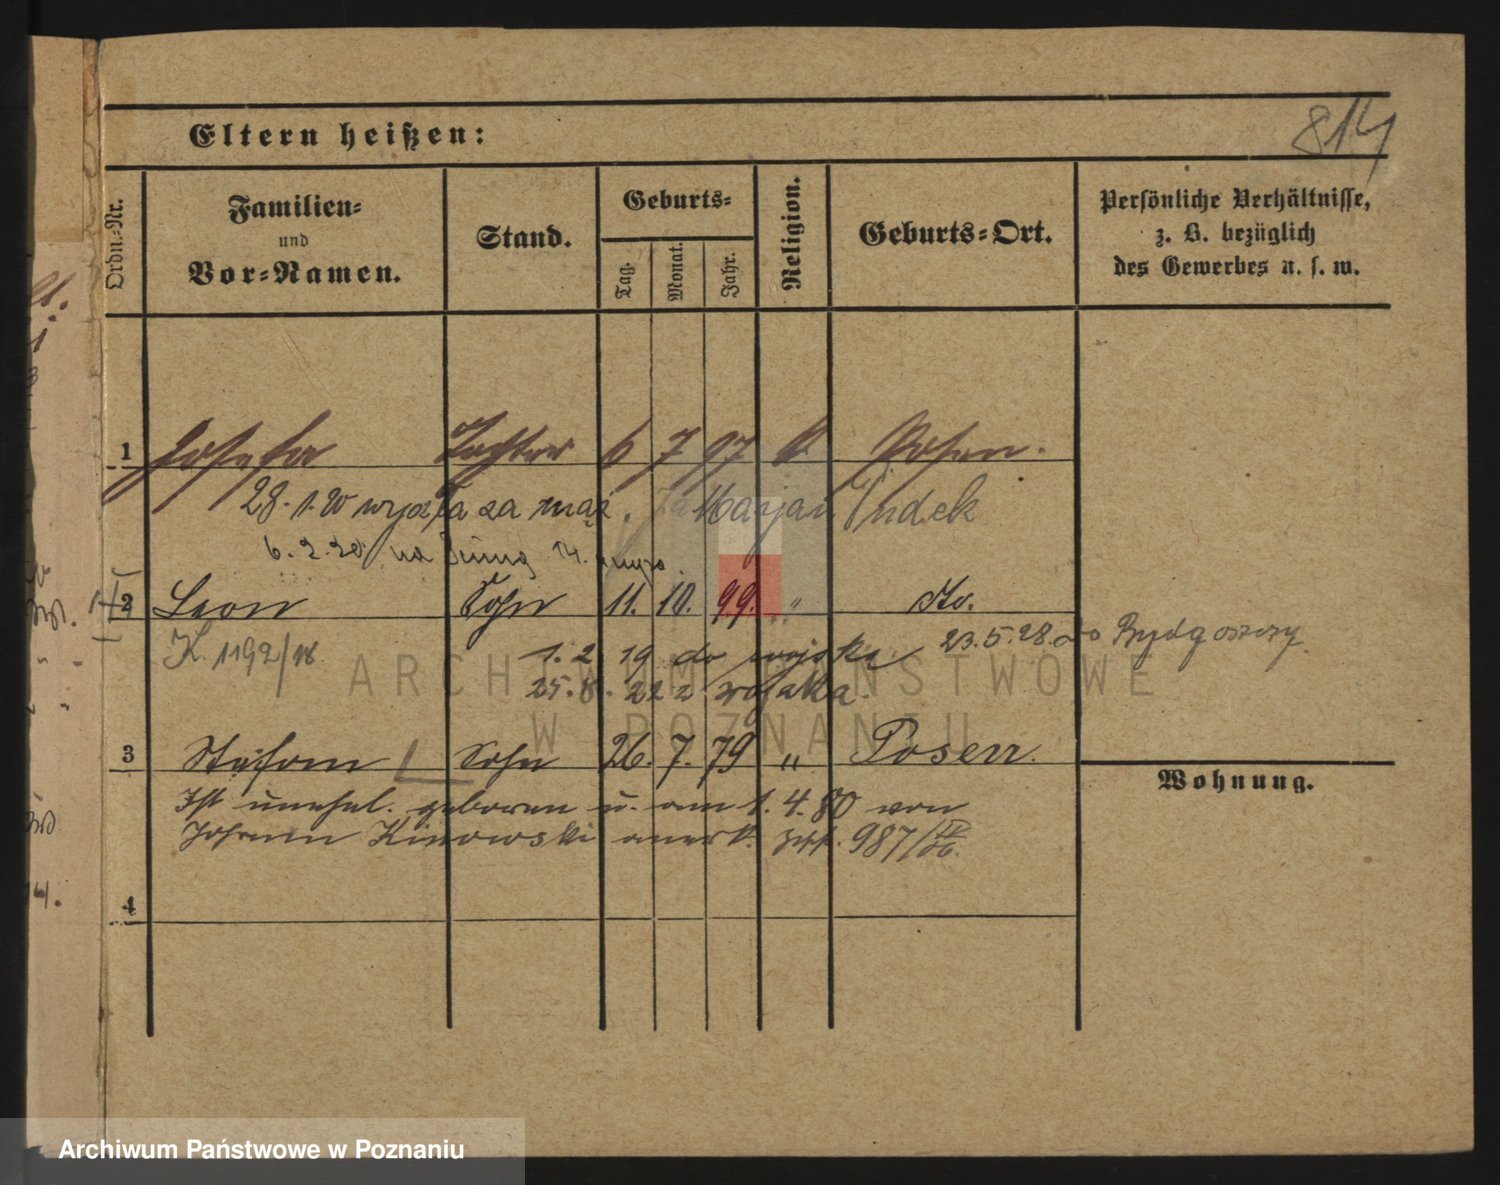 814
Eltern heißen:
Ordn.-Nr.
Familien-
und
Vor-Namen.
Stand.
Geburts-
Tag.
Monat.
Jahr.
Religion.
Geburts-Ort.
Persönliche Verhältnisse,
z. B. bezüglich
des Gewerbes u. s. w.
1 Josefa Tochter 6 7 97 k. Posen.
28. 1. 20 wyszła za mąż. Marjan
6. 2. 20 na 14.
2 Leon Sohn 11. 10. 99. " do.
K. 1192/18 1. 2 19 do wojska 23.5.28. do Bydgoszczy
25. 8. 22 z wojska.
3 Stefan Sohn 26. 7. 79 " Posen.
Ist unehel. geboren u. am 1. 4. 80 von
Johann Kinowski anerk. 987/
4
Wohnung.
ARCHIWUM PAŃSTWOWE
W POZNANIU
Archiwum Państwowe w Poznaniu